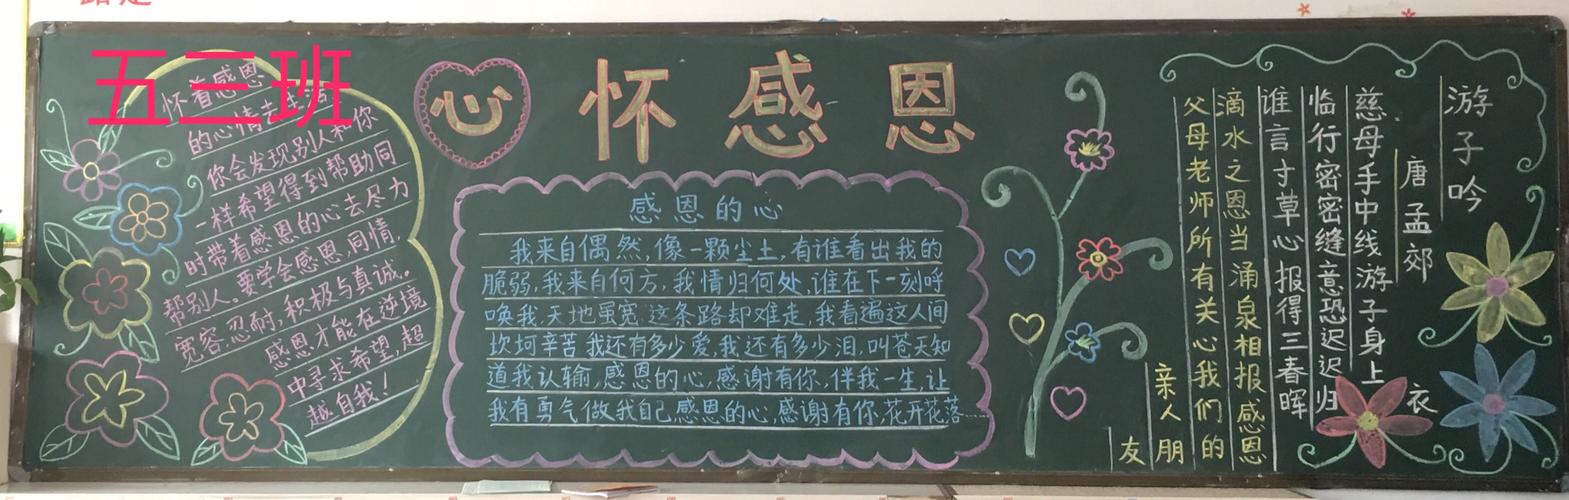 五三班
怀着感恩
的心情去生活
你会发现别人和你
一样希望得到帮助同
时带着感恩的心去尽力
帮别人。要学会感恩,同情,
宽容,忍耐,积极与真诚。
感恩才能在逆境
中寻求希望,超
越自我!
心怀感恩
感恩的心
我来自偶然,像一颗尘土,有谁看出我的
脆弱,我来自何方,我情归何处,谁在下一刻呼
唤我,天地虽宽,这条路却难走,我看遍这人间
坎坷辛苦我还有多少爱,我还有多少泪,叫苍天知
道我认输,感恩的心,感谢有你,伴我一生,让
我有勇气做我自己感恩的心感谢有你,花开花落……
游子吟
唐孟郊
慈母手中线游子身上
衣
临行密密缝意恐迟迟归
谁言寸草心报得三春晖
滴水之恩当涌泉相报感恩
父母老师所有关心我们的
亲人朋
友